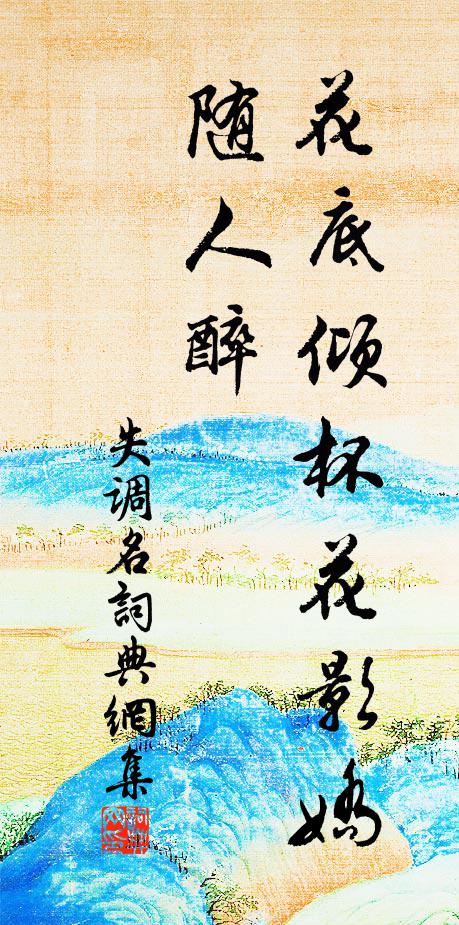 花底傾杯花影嬌
随人醉
失調名詞典網集